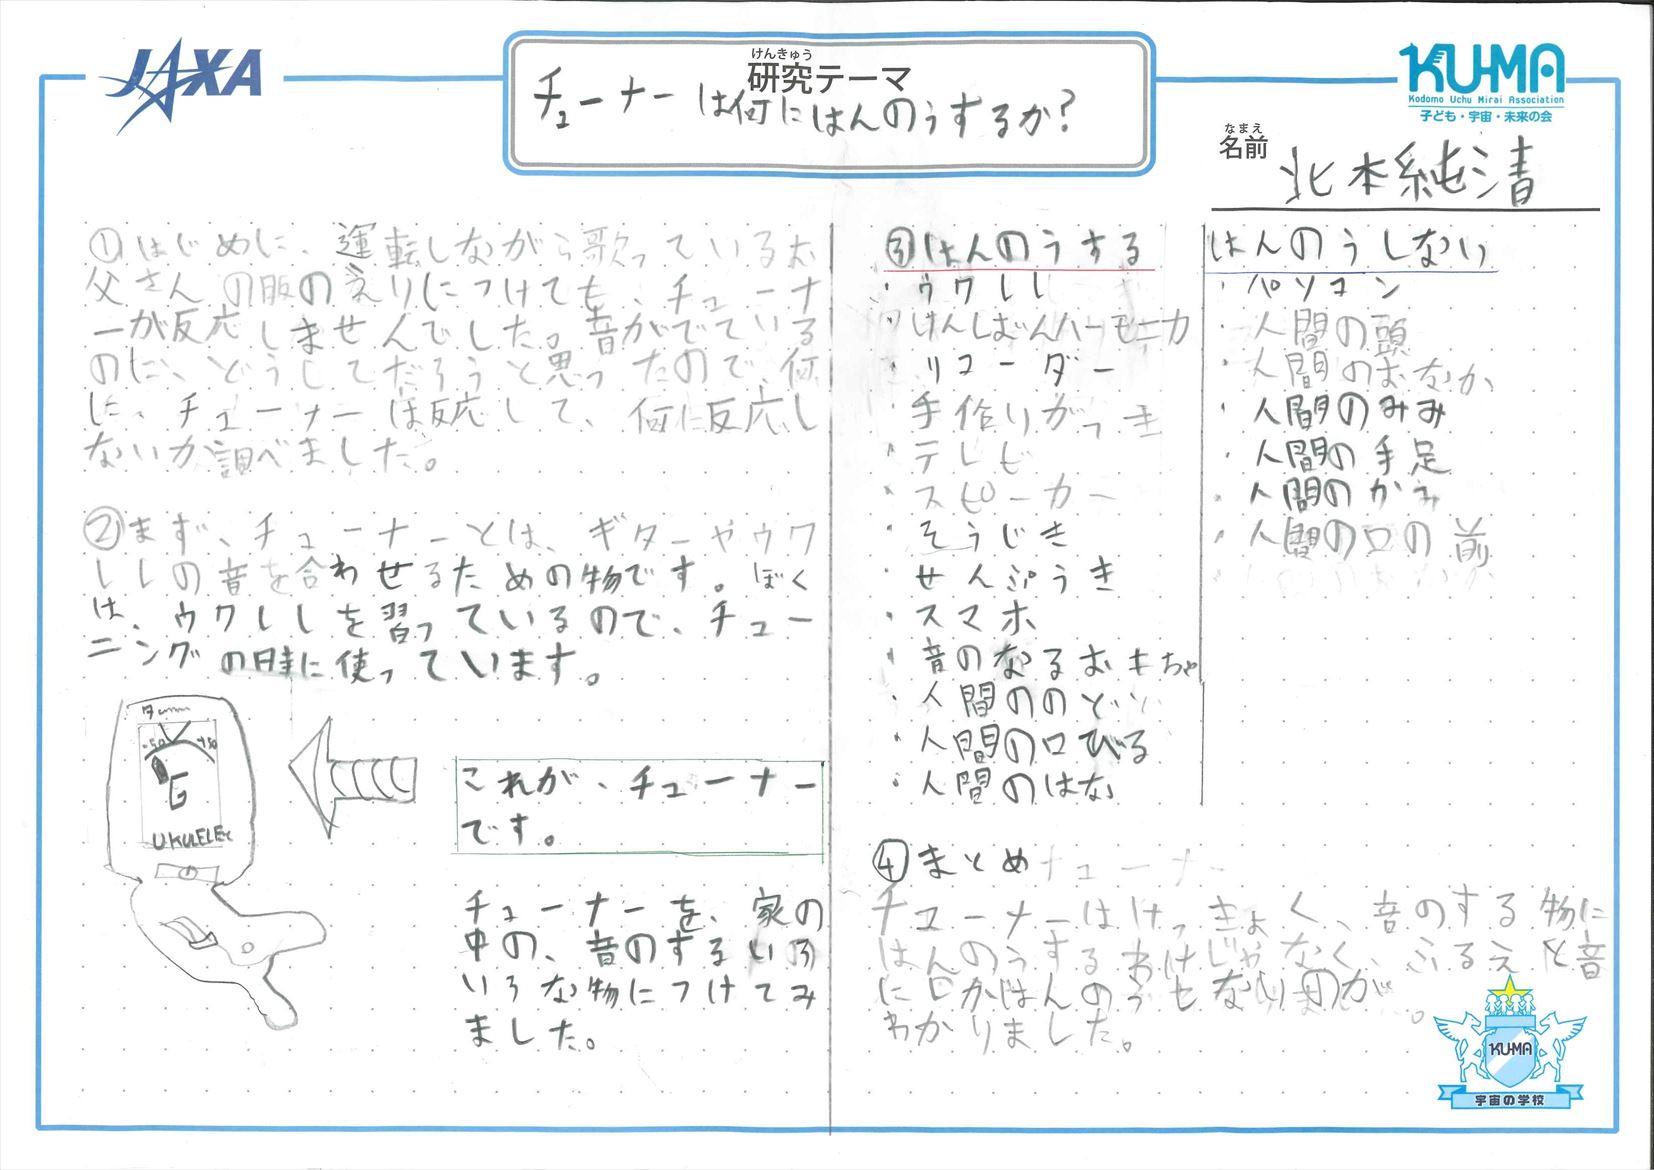 JAXA
けんきゅう
研究テーマ
チューナーは何にはんのうするか?
KUMA
Kodomo Uchu Mirai Association
子ども・宇宙・未来の会
なまえ
名前
北本純清
①はじめに、運転しながら歌っているお
父さんの服のえりにつけても、チューナ
ーが反応しませんでした。音がでている
のに、どうしてだろうと思ったので、何
に、チューナーは反応して、何に反応し
ないか調べました。
②まず、チューナーとは、ギターやウク
レレの音を合わせるための物です。ぼく
は、ウクレレを習っているので、チュー
ニングの時に使っています。
-50 +50
G
UKULELE
これが、チューナー
です。
チューナーを、家の
中の、音のするいろ
いろな物につけてみ
ました。
③はんのうする
・ウクレレ
・けんばんハーモニカ
・リコーダー
・手作りがっき
・テレビ
・スピーカー
・そうじき
・せんぷうき
・スマホ
・音のなるおもちゃ
・人間ののど
・人間の口びる
・人間のはな
はんのうしない
・パソコン
・人間の頭
・人間のおなか
・人間のみみ
・人間の手足
・人間のかみ
・人間の口の前
④まとめ
チューナーはけっきょく、音のする物に
はんのうするわけじゃなく、ふるえと音
にしかはんのうせなりのが
わかりました。
KU-MA
宇宙の学校